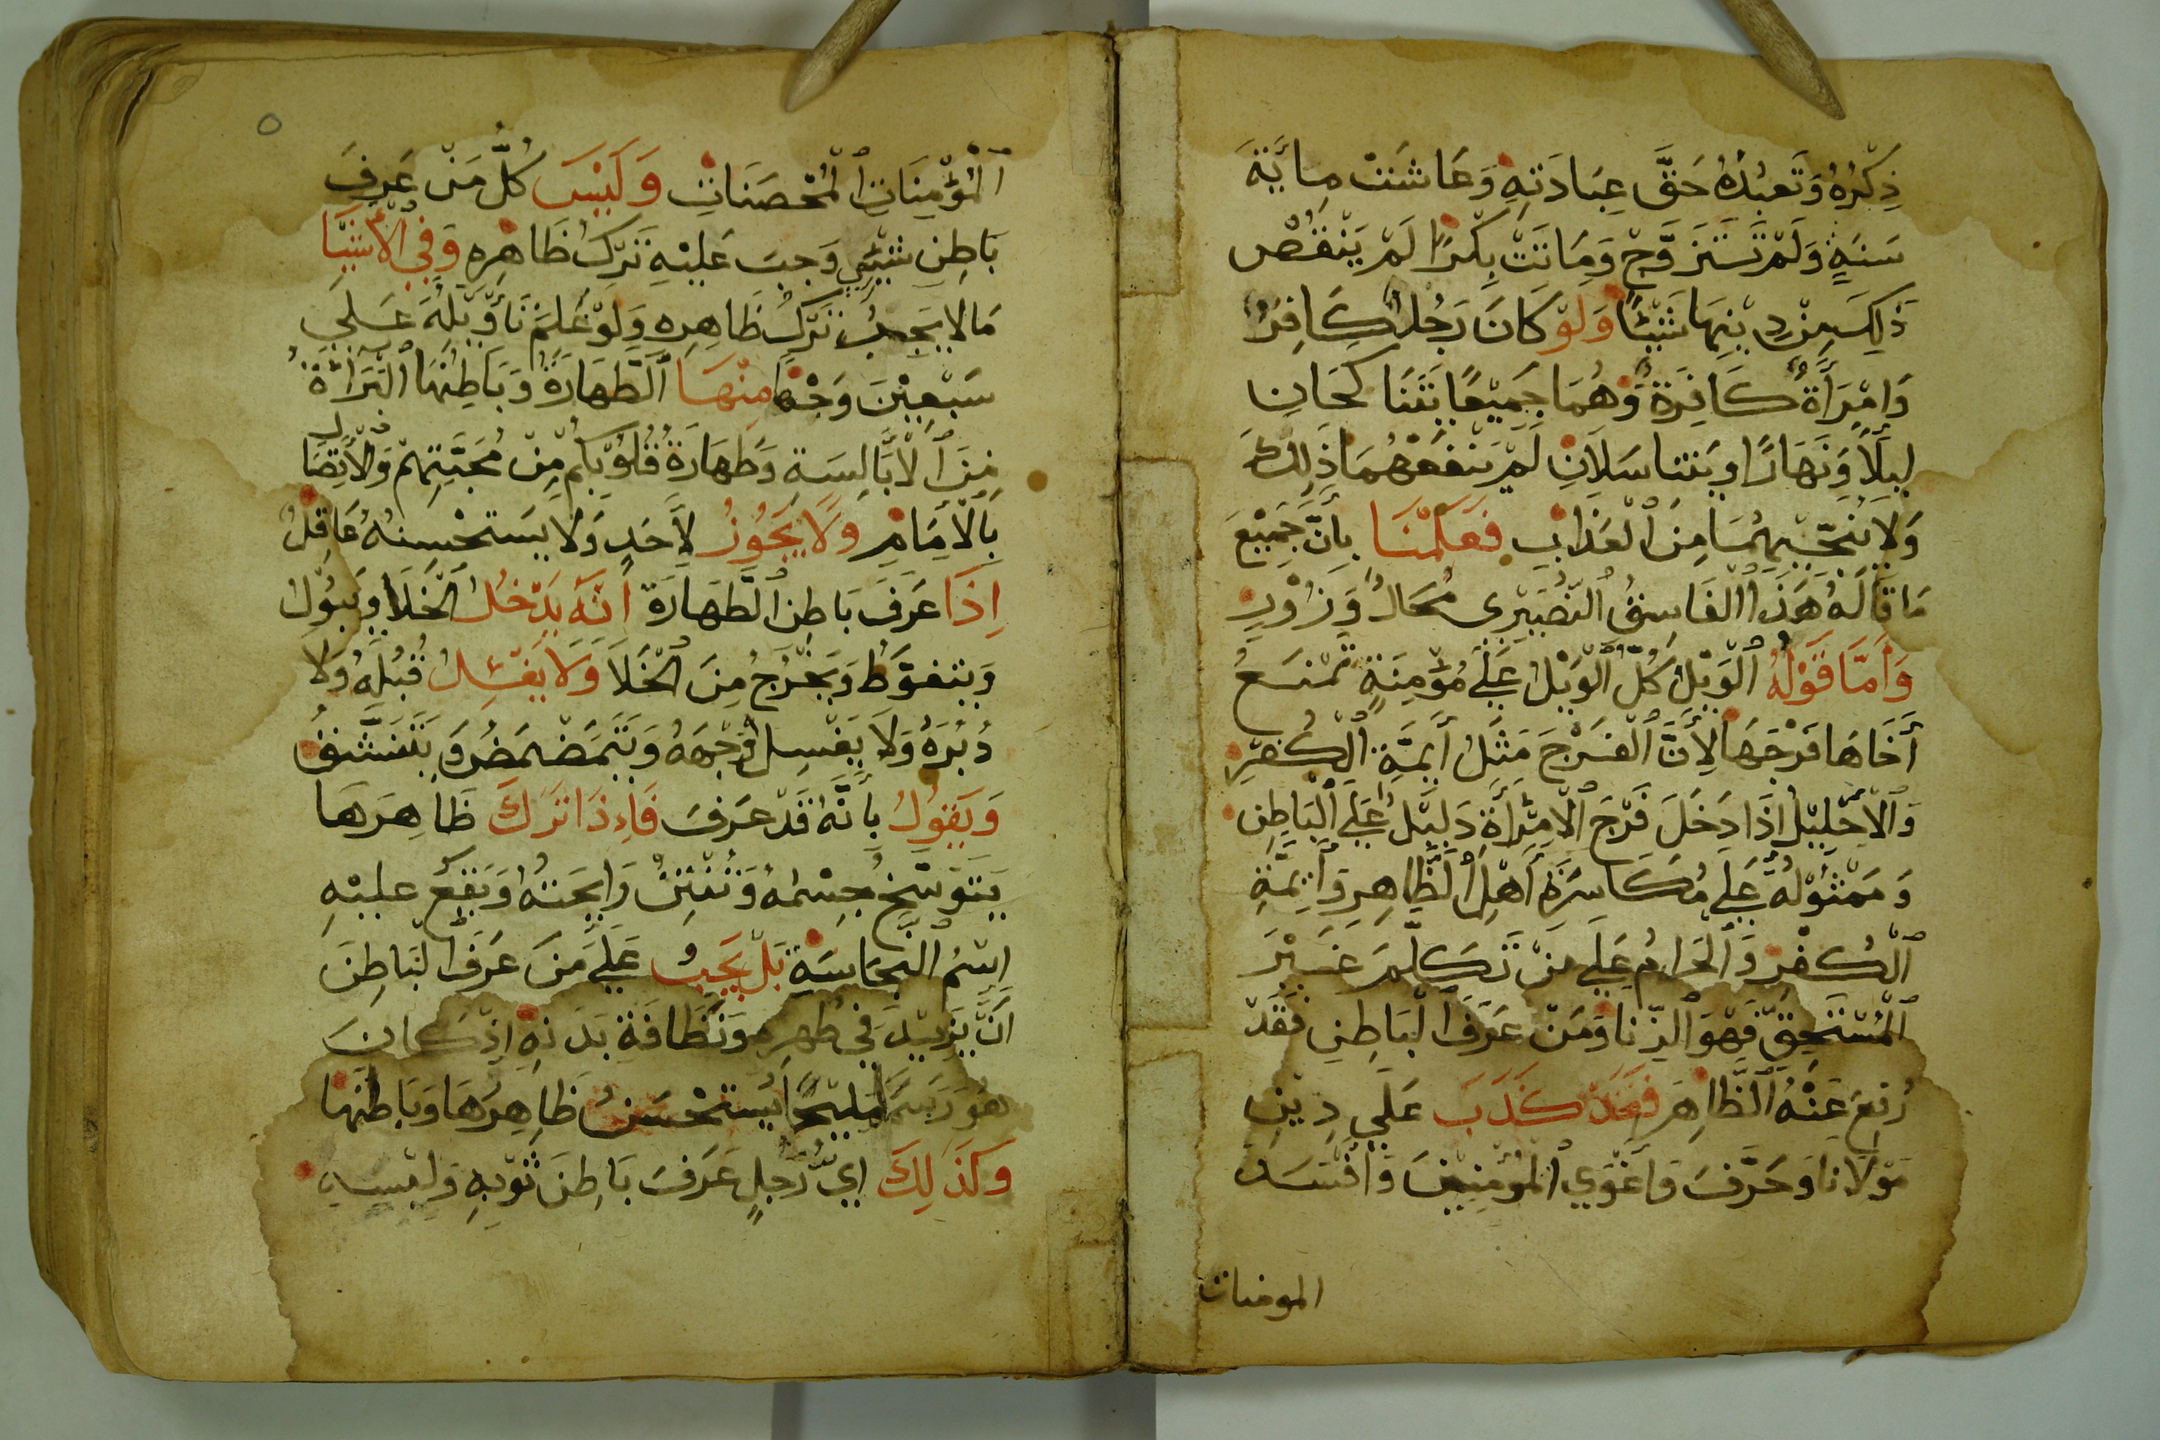 ذِكْرُهُ وَتَعبُدُهُ حَقَّ عِبَادَتِهِ وَعَاشَتْ مِائَةَ
سَنَةٍ وَلَمْ تَتَزَوَّجْ وَمَاتَتْ بِكْرًا لَمْ يَنْقُصْ
ذَلِكَ مِنْ دِينِهَا شَيْئًا وَلَوْ كَانَ رَجُلًا كَافِرًا
وَامْرَأَةً كَافِرَةً وَهُمَا جَمِيْعًا يَتَنَاكَحَانِ
لَيْلًا وَنَهَارًا وَيَتَنَاسَلَانِ لَمْ يَنْفَعْهُمَا ذَلِكَ
وَلَا يُنَجِّيْهِمَا مِنَ الْعَذَابِ فَعَلِمْنَا بِأَنَّ جَمِيْعَ
مَا قَالَهُ هَذَا الفَاسِقُ النُّصَيْرِي مُحَالٌ وَزُوْرٌ
وَأَمَّا قَوْلُهُ الْوَيْلُ كُلُّ الْوَيْلُ عَلَى مُؤْمِنَةٍ تَمْنَعُ
أَخَاهَا فَرْجَهَا لِأَنَّ الْفَرْجَ مَثَلُ أَيِمَّةِ الْكُفْرِ
وَالْاحْلِيْلُ اذَا دَخَلَ فَرْجَ الْامْرَأَةِ دَلِيْلٌ عَلَى الْبَاطِنِ
وَمَمْثُوْلُهُ عَلَى مُكَاسَرَةِ أَهْلِ الْظَّاهِرِ وَأَيِمَّةِ
الْكُفْرِ وَالْحَرَامُ عَلَى مَنْ تَكَلَّمَ غَيْرَ
الْمُسْتَحِقِّ فَهُوَ الزِّنَا وَمَنْ عَرَفَ الْبَاطِنِ فَقَدْ
رُفِعَ عَنْهُ الْظَّاهِرَ فَقَدْ كَذَبَ عَلَي دِيْنِ
مَوْلَانَا وَحَرَّفَ وَأَغْوَي الْمُؤْمِنِينَ وَافْسَدَ
المومنات
الْمُؤْمِنَاتِ الْمُحْصَنَاتِ وَلَيْسَ كُلُّ مَنْ عَرِفَ
بَاطِنَ شَيْءٍ وَجَبَ عَلَيْهِ تَرْكُ ظَاهِرِهِ وَفِي الْأَشْيَا
مَا لا يَجِبُ تَرْكُ ظَاهِرِهِ وَلَوْ عُلِمَ تَأوِيْلُهُ عَلَي
سَبْعِيْنَ وَجْهًا مِنْهَا الطَّهَارَةُ وَبَاطِنُهَا الْبَرَاءَةُ
مِنَ الْأَبَالِسَةِ وَطَهَارَةُ قُلُوْبِكُمْ مِنْ مُحَبَّتِهِمْ وَالْاتِّصَال
بِالْأِمَامِ وَلَا يَجُوْزُ لِأَحَدٍ وَلَا يَسْتَحْسِنُهُ عَاقِلٌ
اِذَا عَرَفَ بَاطِنَ الطَّهَارَةَ انَّهُ يَدْخُلُ الْخَلَا وَيَبُوْلُ
وَيَتَغَوَّطُ وَيَخْرُجُ مِنَ الْخَلَا وَلَا يَغْسِلُ قُبُلَهُ وَلَا
دُبُرَهُ وَلَا يَغْسِلُ وَجْهَهُ وَيَتَمَضْمَضُ وَيَتَنَشَّقُ
وَيَقُوْلُ بِأَنَّهُ قَدْ عَرَفَ فَاءِذَا تَرَكَ ظَاهِرَهَا
يَتَوَسَّخُ جِسْمُهُ وَتُنْتِنُ رَايِحَتُهُ وَيَقَعُ عَلَيْهِ
اِسْمُ النَّجَاسَةِ بَلْ يَجِبُ عَلَى مَنْ عَرَفَ الْبَاطِنَ
انْ يَزِيْدَ فِي طُهْرِهِ وَنَظَافَةِ بَدَنِهِ اِذْ كَانَ
هُوَ رَسْمًا مَلِيْحًا يُسْتَحْسَنُ ظَاهِرُهَا وَبَاطِنُهَا
وَكَذَلِكَ ايُّ رَجُلٍ عَرَفَ بَاطِنَ ثَوْبِهِ وَلِبْسِهِ